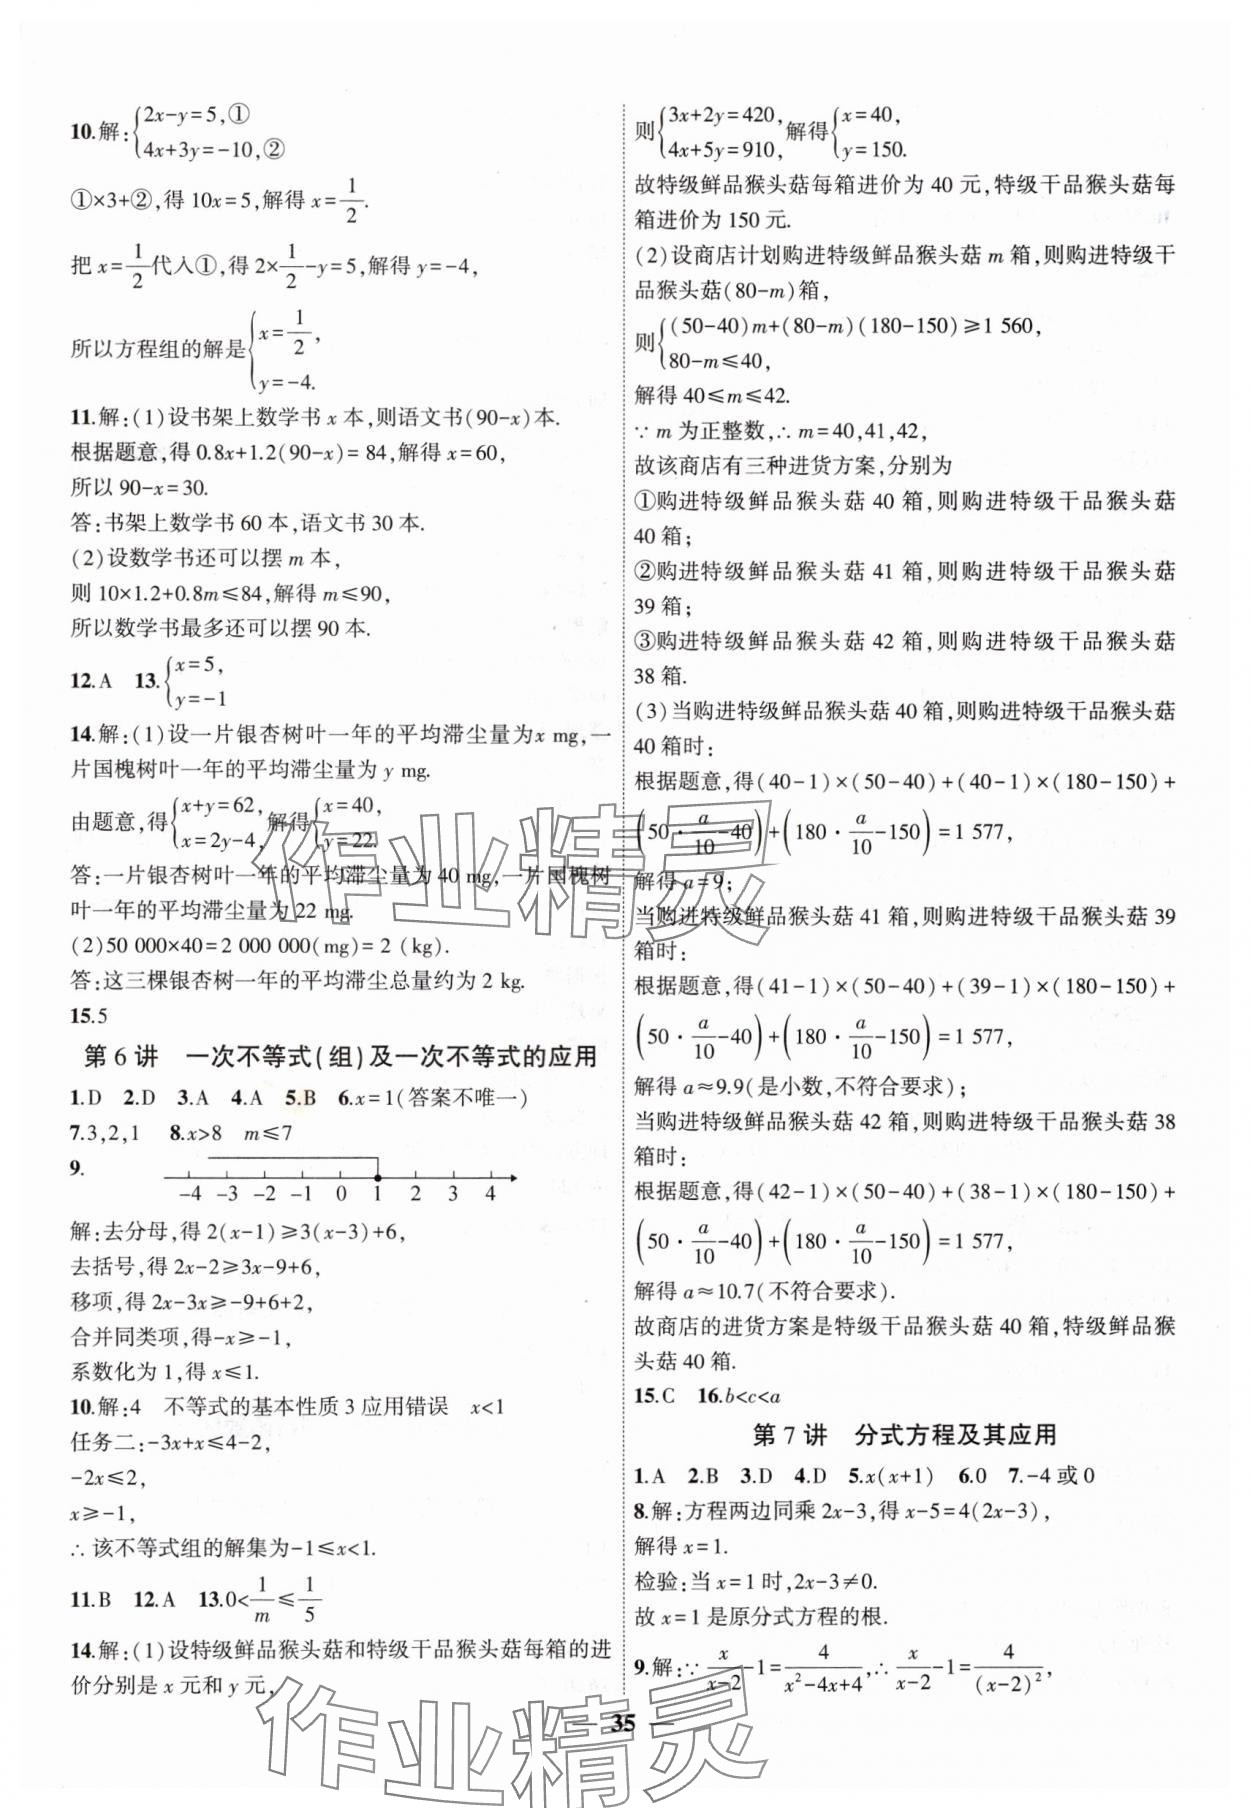 10.解:{2x-y=5,①
4x+3y=-10,②
①×3+②,得 10x=5,解得 x=1/2.
把 x=1/2代入①,得 2×1/2-y=5,解得 y=-4,
所以方程组的解是{x=1/2,
y=-4.
11.解:(1)设书架上数学书 x 本,则语文书(90-x)本.
根据题意,得 0.8x+1.2(90-x)=84,解得 x=60,
所以 90-x=30.
答:书架上数学书 60 本,语文书 30 本.
(2)设数学书还可以摆 m 本,
则 10×1.2+0.8m≤84,解得 m≤90,
所以数学书最多还可以摆 90 本.
12.A 13.{x=5,
y=-1
14.解:(1)设一片银杏树叶一年的平均滞尘量为x mg,一
片国槐树叶一年的平均滞尘量为 y mg.
由题意,得{x+y=62, x=2y-4, 解得{x=40, y=22.
答:一片银杏树叶一年的平均滞尘量为 40 mg,一片国槐树
叶一年的平均滞尘量为 22 mg.
(2)50 000×40=2 000 000(mg)=2 (kg).
答:这三棵银杏树一年的平均滞尘总量约为 2 kg.
15.5
第 6 讲 一次不等式(组)及一次不等式的应用
1.D 2.D 3.A 4.A 5.B 6.x=1(答案不唯一)
7.3,2,1 8.x>8 m≤7
9.
-4 -3 -2 -1 0 1 2 3 4
解:去分母,得 2(x-1)≥3(x-3)+6,
去括号,得 2x-2≥3x-9+6,
移项,得 2x-3x≥-9+6+2,
合并同类项,得-x≥-1,
系数化为 1,得 x≤1.
10.解:4 不等式的基本性质 3 应用错误 x<1
任务二:-3x+x≤4-2,
-2x≤2,
x≥-1,
∴该不等式组的解集为-1≤x<1.
11.B 12.A 13.0<1/m≤1/5
14.解:(1)设特级鲜品猴头菇和特级干品猴头菇每箱的进
价分别是 x 元和 y 元,
则{3x+2y=420, 4x+5y=910, 解得{x=40, y=150.
故特级鲜品猴头菇每箱进价为 40 元,特级干品猴头菇每
箱进价为 150 元.
(2)设商店计划购进特级鲜品猴头菇 m 箱,则购进特级干
品猴头菇(80-m)箱,
则{(50-40)m+(80-m)(180-150)≥1 560,
80-m≤40,
解得 40≤m≤42.
∵m 为正整数,∴m=40,41,42,
故该商店有三种进货方案,分别为
①购进特级鲜品猴头菇 40 箱,则购进特级干品猴头菇
40 箱;
②购进特级鲜品猴头菇 41 箱,则购进特级干品猴头菇
39 箱;
③购进特级鲜品猴头菇 42 箱,则购进特级干品猴头菇
38 箱.
(3)当购进特级鲜品猴头菇 40 箱,则购进特级干品猴头菇
40 箱时:
根据题意,得(40-1)×(50-40)+(40-1)×(180-150)+
(50·a/10-40)+(180·a/10-150)=1 577,
解得 a=9;
当购进特级鲜品猴头菇 41 箱,则购进特级干品猴头菇 39
箱时:
根据题意,得(41-1)×(50-40)+(39-1)×(180-150)+
(50·a/10-40)+(180·a/10-150)=1 577,
解得 a≈9.9(是小数,不符合要求);
当购进特级鲜品猴头菇 42 箱,则购进特级干品猴头菇 38
箱时:
根据题意,得(42-1)×(50-40)+(38-1)×(180-150)+
(50·a/10-40)+(180·a/10-150)=1 577,
解得 a≈10.7(不符合要求).
故商店的进货方案是特级干品猴头菇 40 箱,特级鲜品猴
头菇 40 箱.
15.C 16.b<c<a
第 7 讲 分式方程及其应用
1.A 2.B 3.D 4.D 5.x(x+1) 6.0 7.-4 或 0
8.解:方程两边同乘 2x-3,得 x-5=4(2x-3),
解得 x=1.
检验:当 x=1 时,2x-3≠0.
故 x=1 是原分式方程的根.
9.解:∵x/(x-2)-1=4/(x²-4x+4),∴x/(x-2)-1=4/(x-2)²,
— 35 —
作业精灵
作业精灵